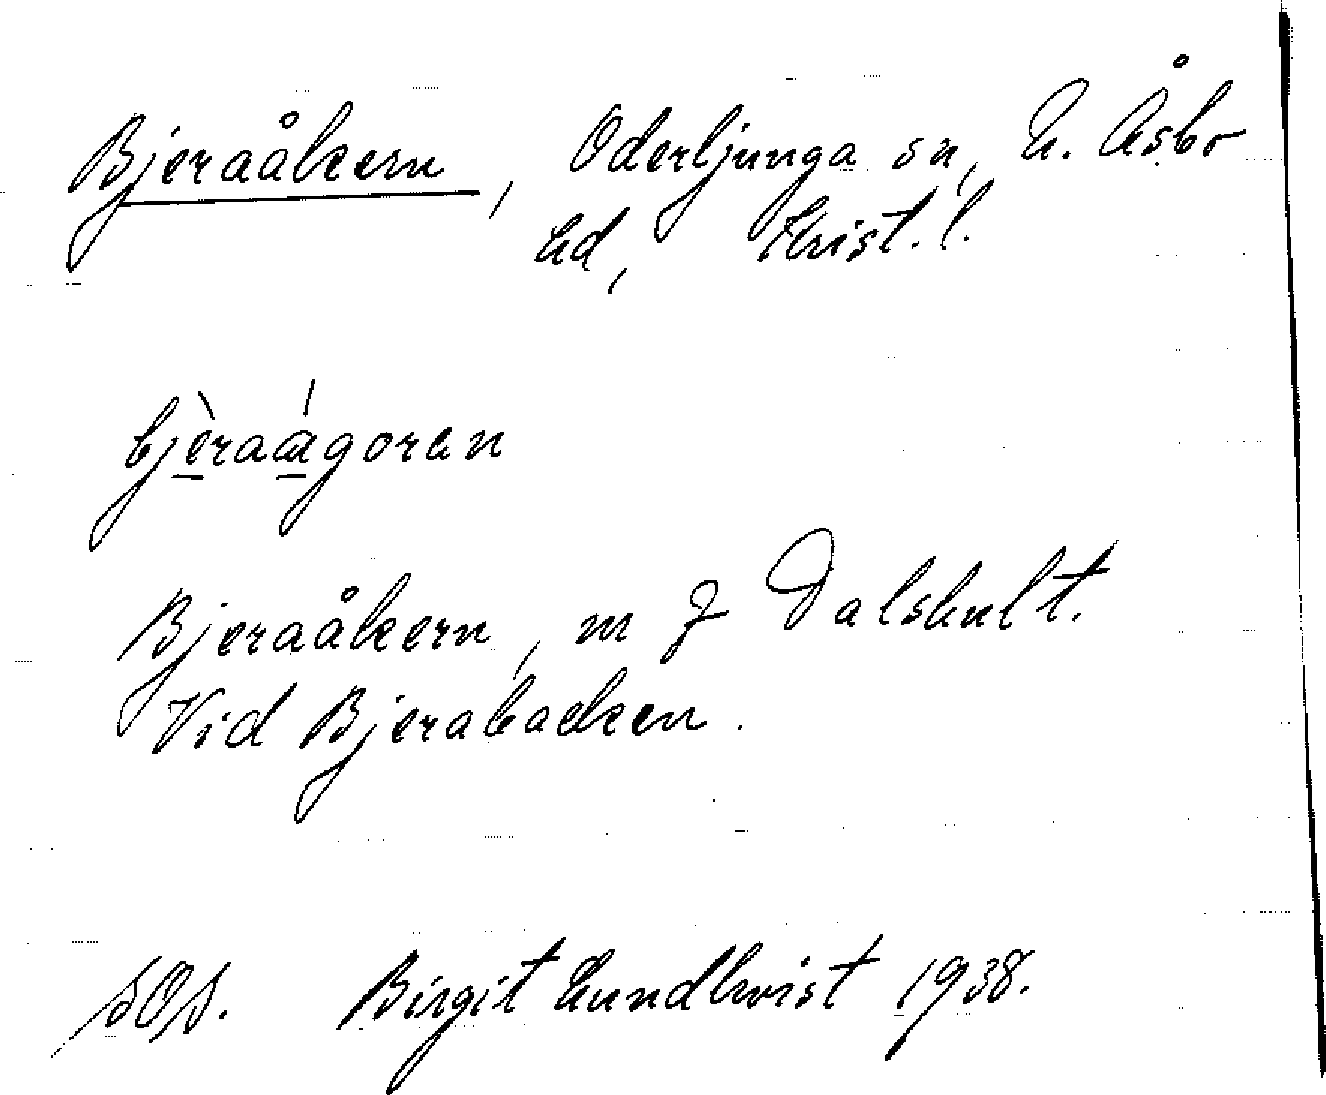 Bjeraåkern, Oderljunga sn, N. Åsbo
hd, Krist. l.
bjèraágoran
Bjeraåkern, m f Dalshult.
Vid Bjerabacken.
SOS. Birgit Lundkvist 1938.